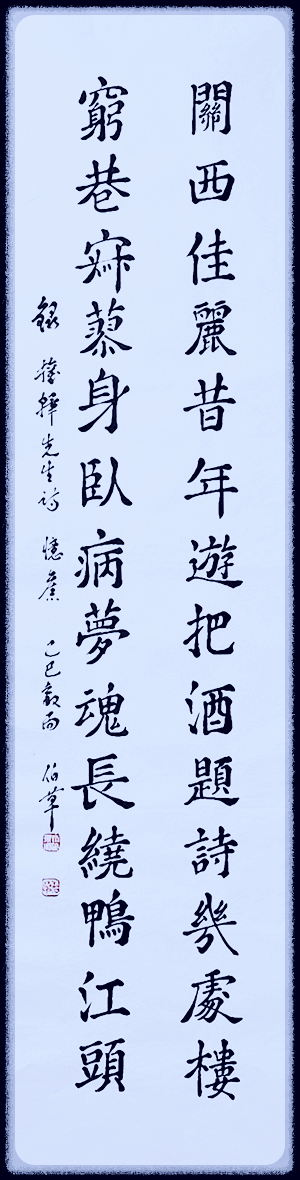 關西佳麗昔年遊把酒題詩幾處樓
窮巷寂蓼身臥病夢魂長繞鴨江頭
錄 權韠先生詩 憶舊 乙巳穀雨 伯草